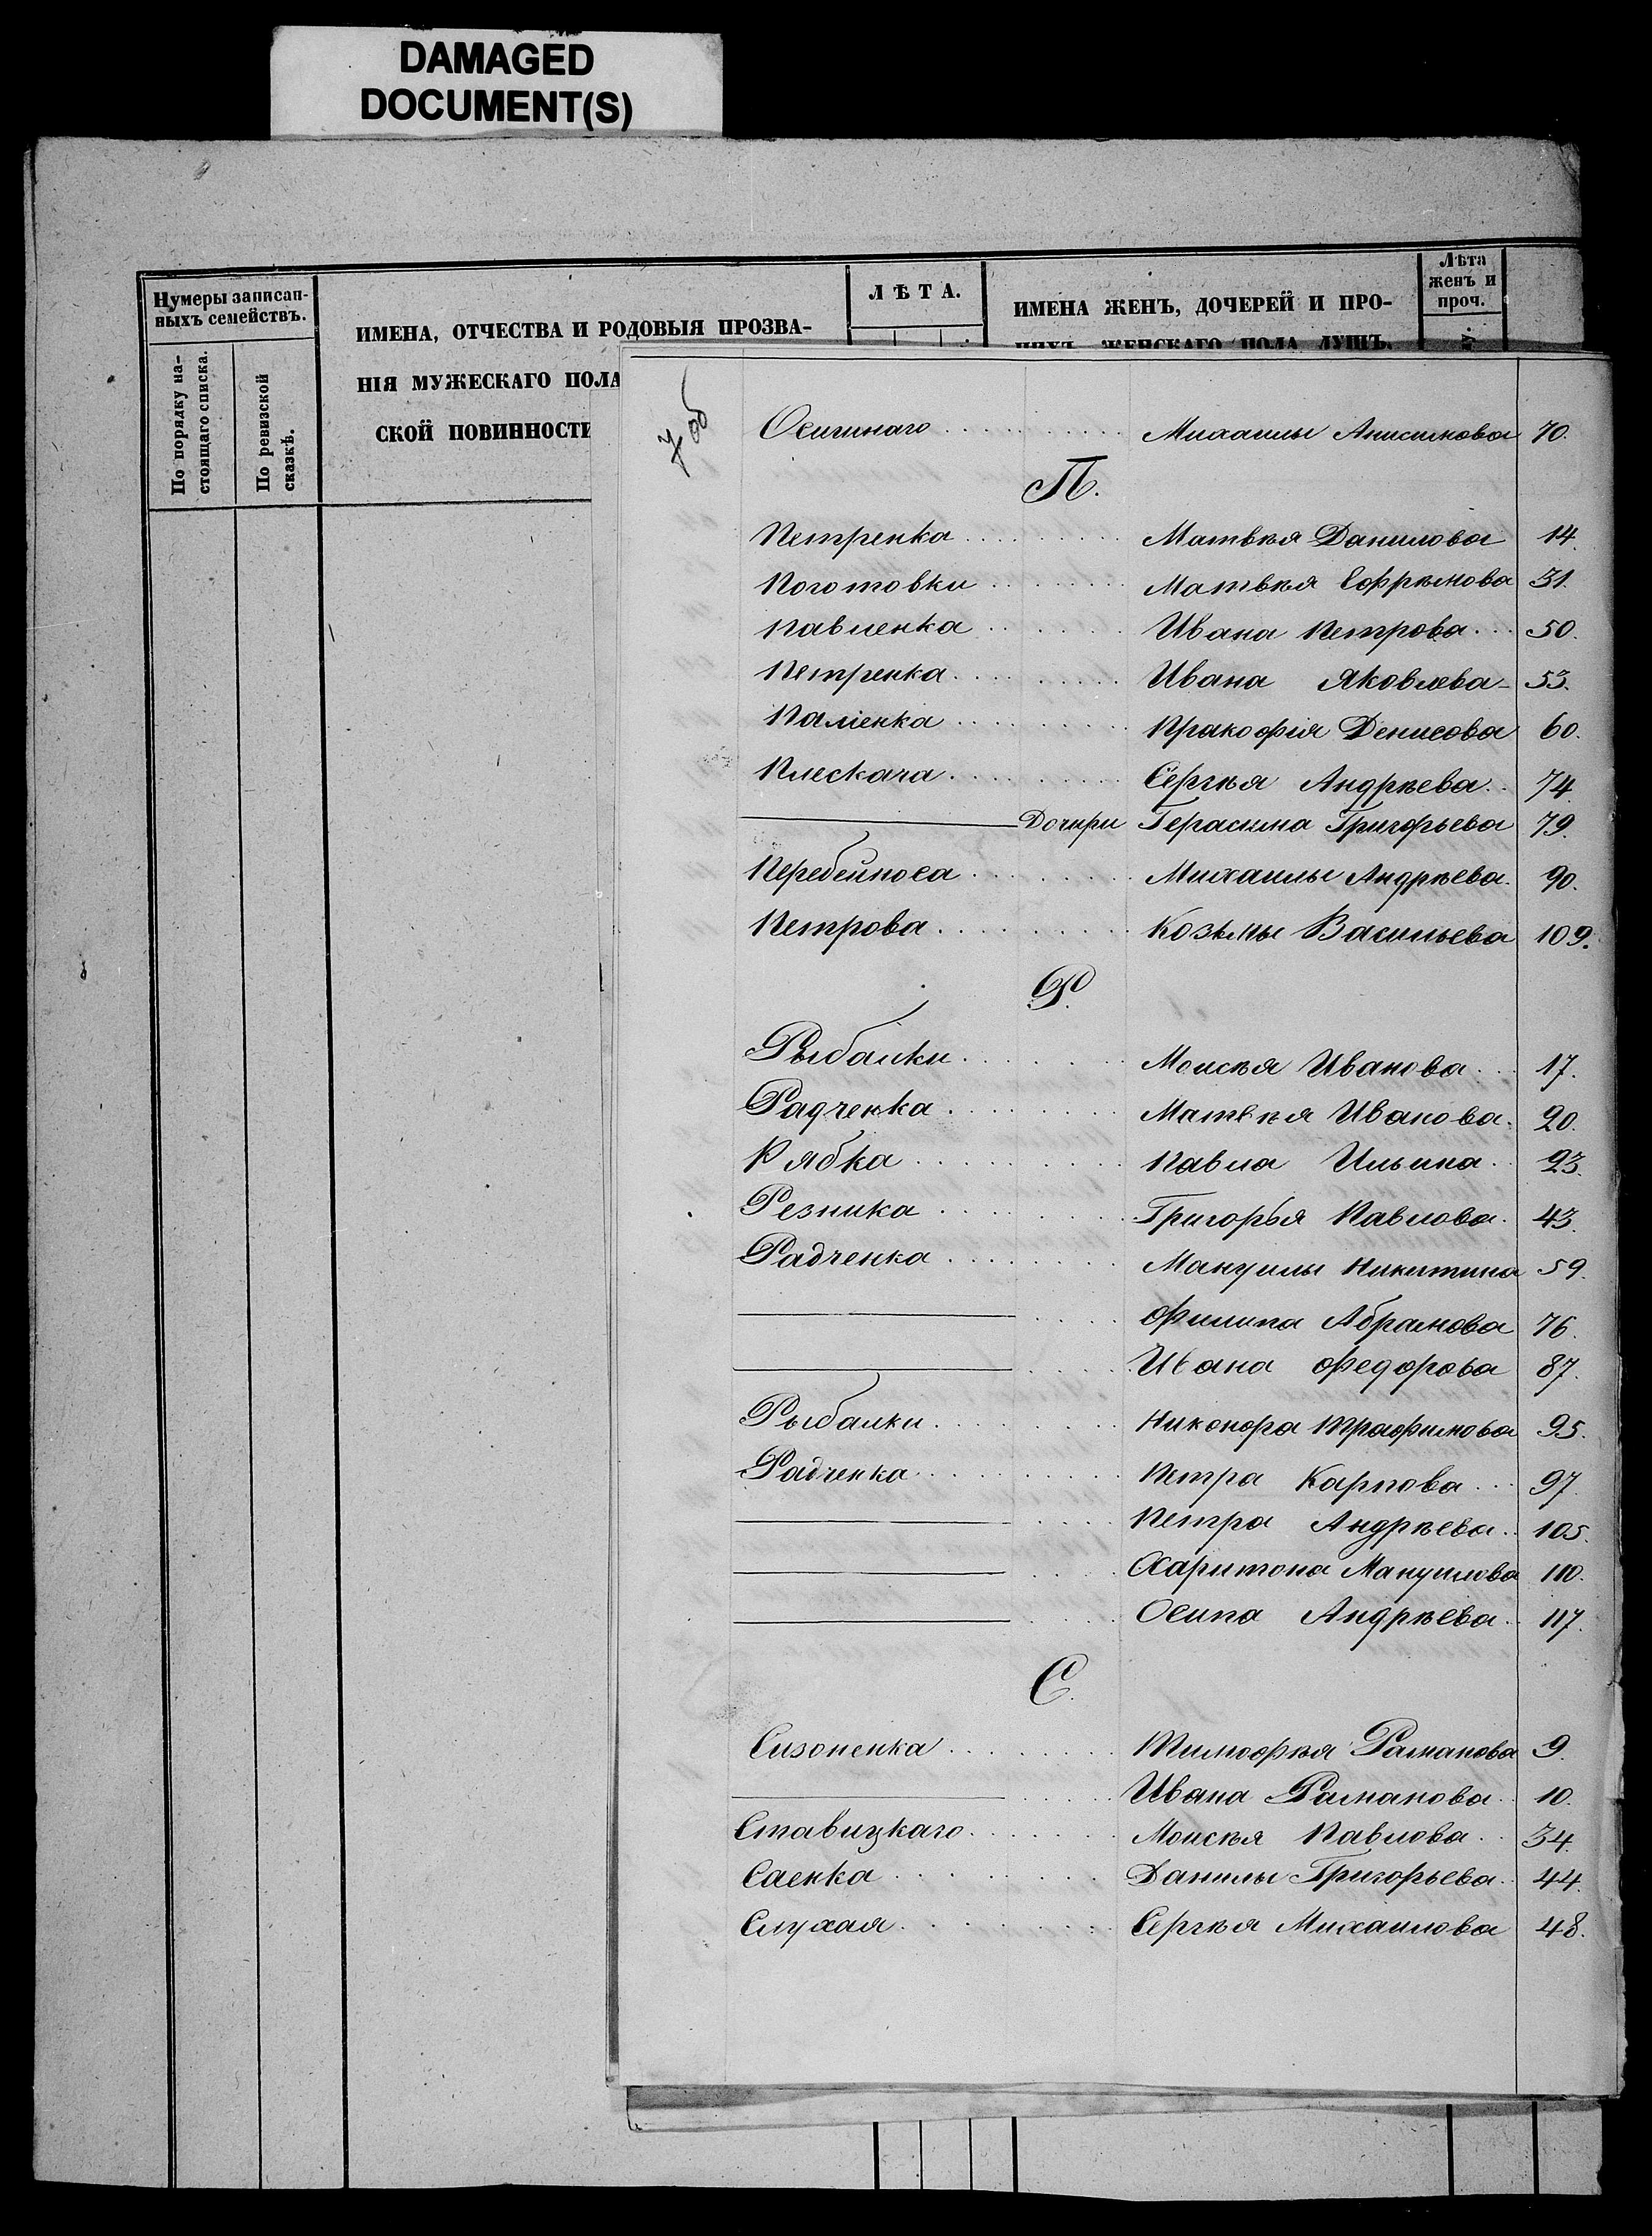 DAMAGED
DOCUMENT(S)
Нумеры записан-
ныхъ семействъ.
По порядку на-
стоящаго списка.
По ревизской
сказкѣ.
ИМЕНА, ОТЧЕСТВА И РОДОВЫЯ ПРОЗВА-
НІЯ МУЖЕСКАГО ПОЛА
СКОЙ ПОВИННОСТИ
ЛѢТА.
ИМЕНА ЖЕНЪ, ДОЧЕРЕЙ И ПРО-
ЧИХЪ ЖЕНСКАГО ПОЛА ДУШЪ.
Лѣта
женъ и
проч.
7 об
Осишнаго . . . . . . Михаилы Анисимова 70.
П.
Петренка . . . . . . Матвѣя Данилова 14.
Поготовки . . . . . . Матвѣя Ефрѣмова 31.
Павленка . . . . . . Ивана Петрова . . 50.
Петренка . . . . . . Ивана Яковлева - 53.
Паліенка . . . . . . Пракофія Денисова 60.
Плескача . . . . . . Сергѣя Андрѣева . . 74.
——— Дочери Герасима Григорьева 79.
Перебейноса . . . . . . Михаилы Андрѣева . 90.
Петрова . . . . . . Козьмы Васильева 109.
Р.
Рыбалки . . . . . . Моисѣя Иванова . . 17.
Радченка . . . . . . Матвѣя Иванова . 20.
Рябка . . . . . . Павла Ильина . . 23.
Резника . . . . . . Григорья Павлова . 43.
Радченка . . . . . . Мануилы Никитина 59.
——— . . . Филипа Абрамова 76.
——— . . . Ивана Федорова 87.
Рыбалки . . . . . . Никонора Трафимова 95.
Радченка . . . . . . Петра Карпова . . . 97.
——— . . . Петра Андрѣева . . 105.
——— . . . Харитона Мануилова 110.
——— . . . Осипа Андрѣева . . 117.
С.
Сизоненка . . . . . . Тимофѣя Раманова 9.
——— . . . Ивана Раманова . . 10.
Ставицкаго . . . . . . Моисѣя Павлова . . 34.
Саенка . . . . . . Данилы Григорьева . . 44.
Слухая . . . . . . Сергѣя Михаилова 48.